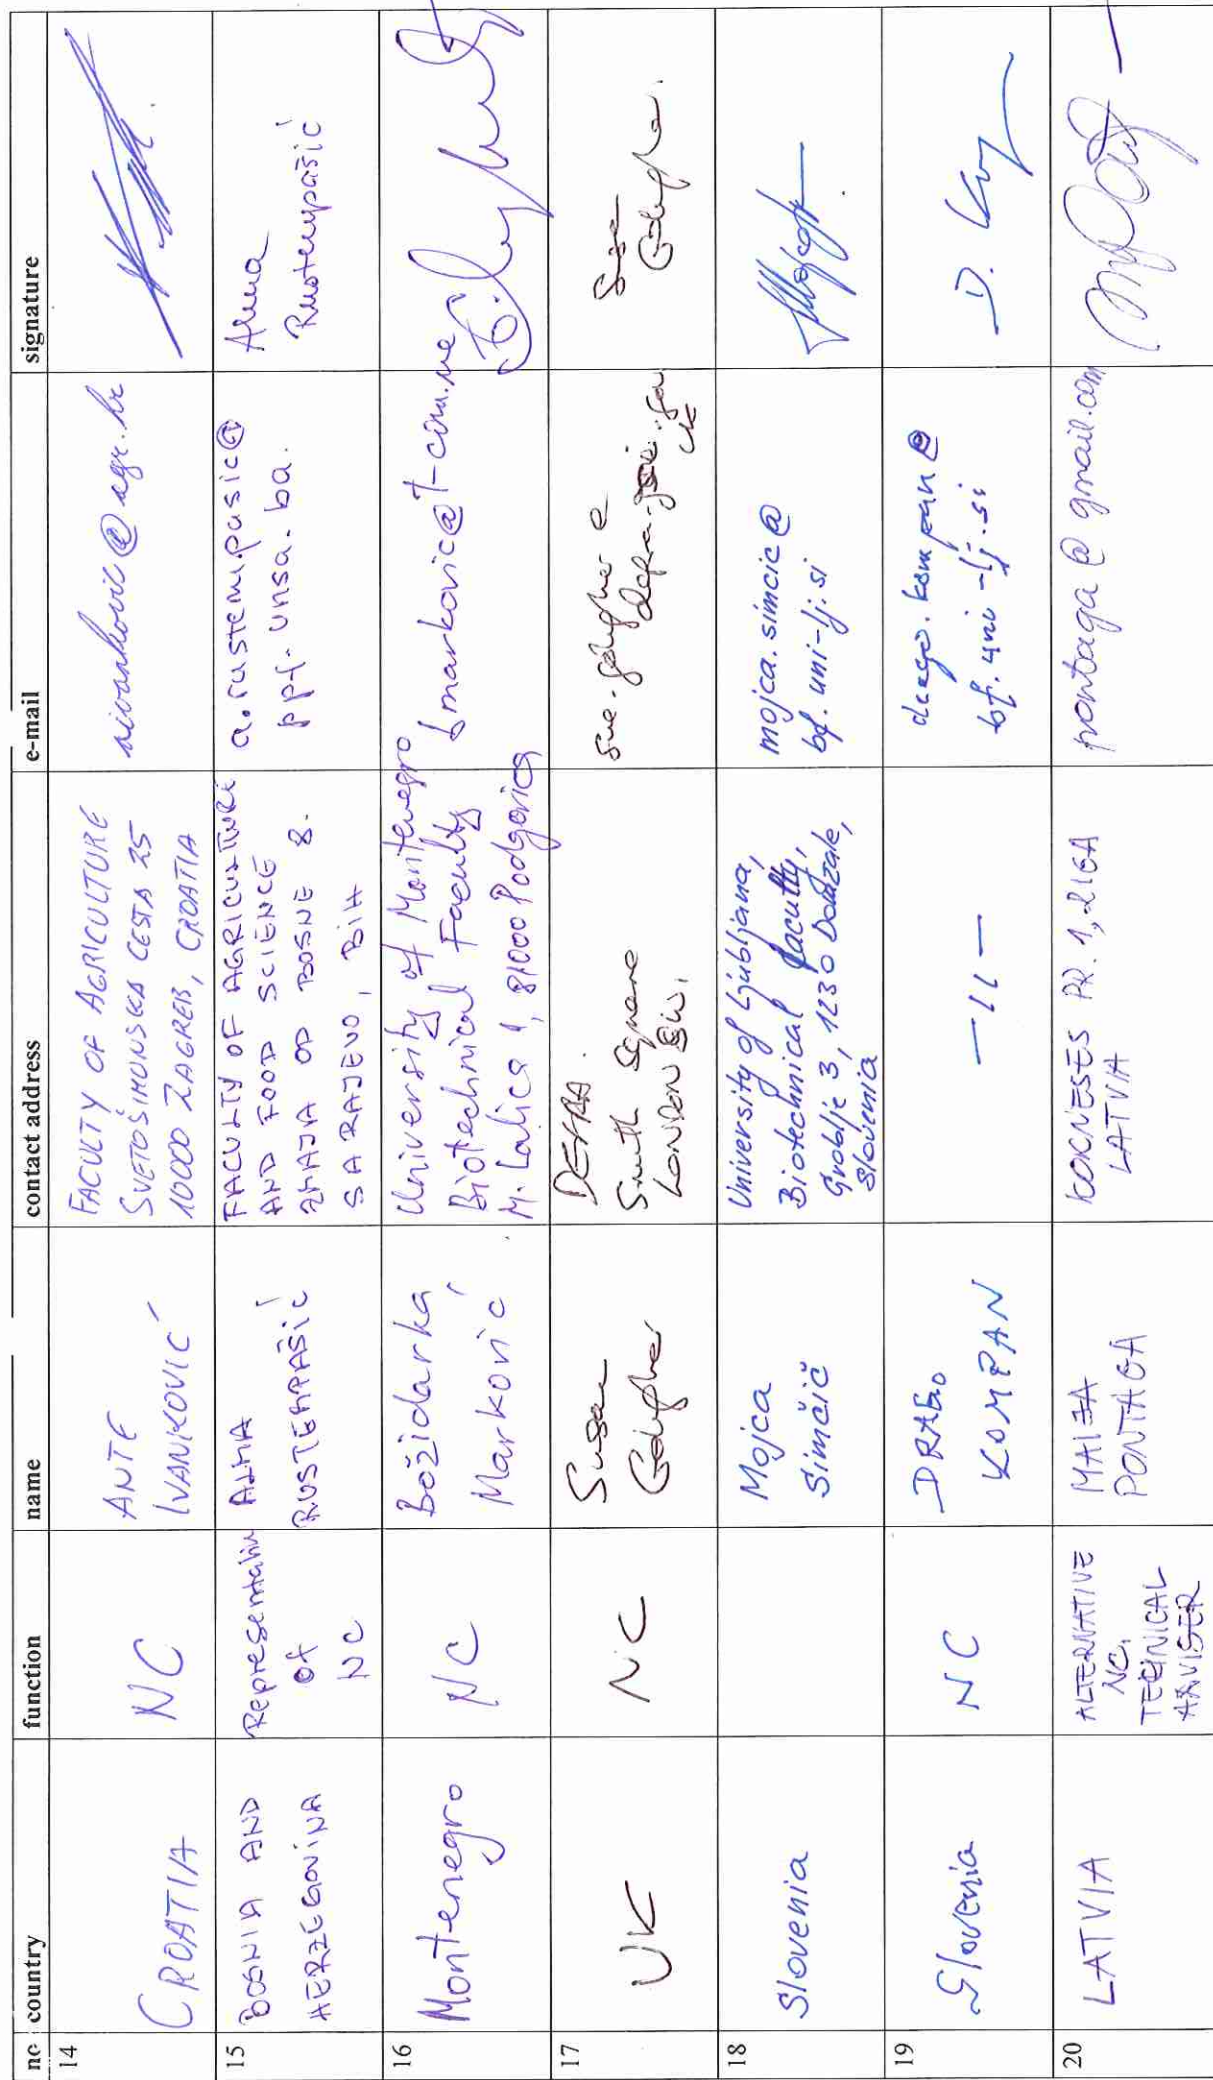 no country function name contact address e-mail signature
14
CROATIA
NC
ANTE
IVANKOVIĆ
FACULTY OF AGRICULTURE
SVETOŠIMUNSKA CESTA 25
10000 ZAGREB, CROATIA
aivankovic@agr.hr
15
BOSNIA AND
HERZEGOVINA
Representativ
of
NC
ALMA
RUSTEMPAŠIĆ
FACULTY OF AGRICULTURE
AND FOOD SCIENCE
ZMAJA OD BOSNE 8.
SARAJEVO, BiH
a.rustempasic@
ppf.unsa.ba.
Alma
Rustempašić
16
Montenegro
NC
Božidarka
Marković
University of Montenegro
Biotechnical Faculty
M. Lalica 1, 81000 Podgorica
bmarkovic@t-com.me
17
UK
NC
Susan
DEFRA.
Smith Square
London SW1
18
Slovenia
Mojca
Simčič
University of Ljubljana,
Biotechnical faculty,
Groblje 3, 1230 Domžale,
Slovenia
mojca.simcic@
bf.uni-lj.si
19
Slovenia
NC
DRAGO
KOMPAN
-11-
drago.kompan@
bf.uni-lj.si
D.
20
LATVIA
ALTERNATIVE
NC,
TECHNICAL
ADVISER
MAIJA
PONTAGA
KOKNESES PR. 1, RIGA
LATVIA
pontaga@gmail.com